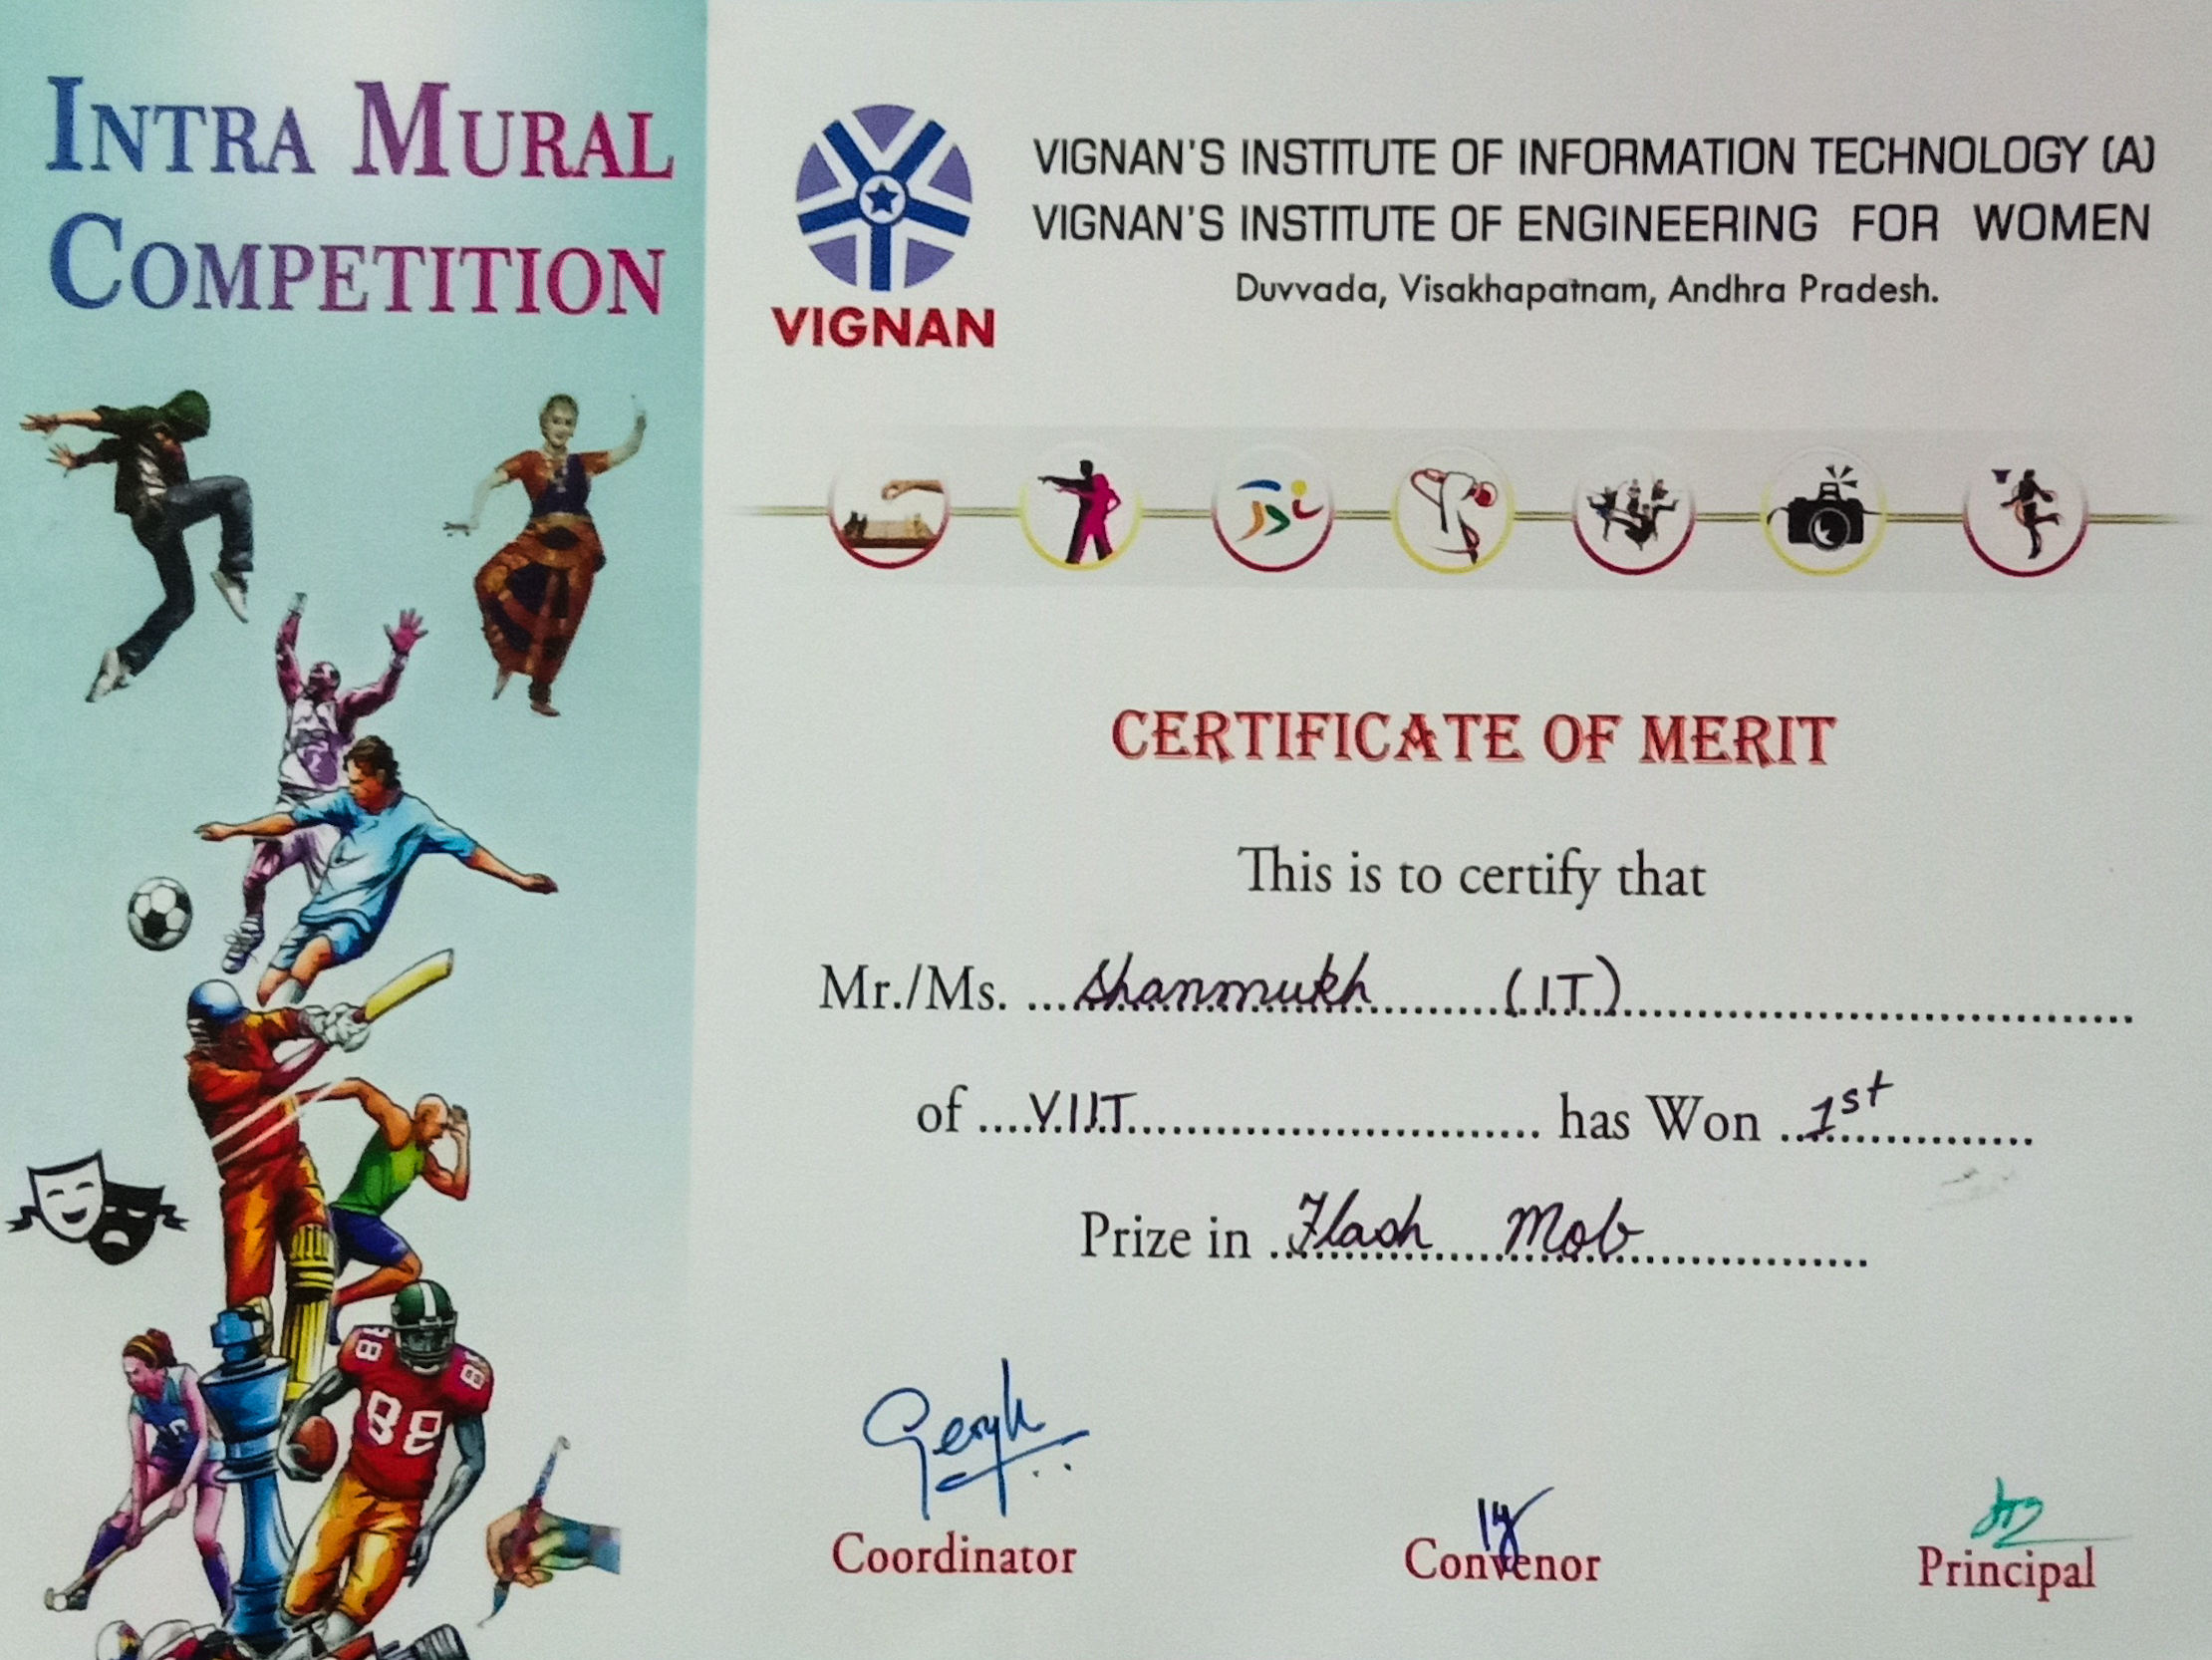 INTRA MURAL
COMPETITION
VIGNAN
VIGNAN'S INSTITUTE OF INFORMATION TECHNOLOGY (A)
VIGNAN'S INSTITUTE OF ENGINEERING FOR WOMEN
Duvvada, Visakhapatnam, Andhra Pradesh.
CERTIFICATE OF MERIT
This is to certify that
Mr./Ms. ...Shanmukh (IT)
of ....V.I.I.T. has Won 1st
Prize in Flash Mob
88
88
88
Coordinator
Convenor
Principal